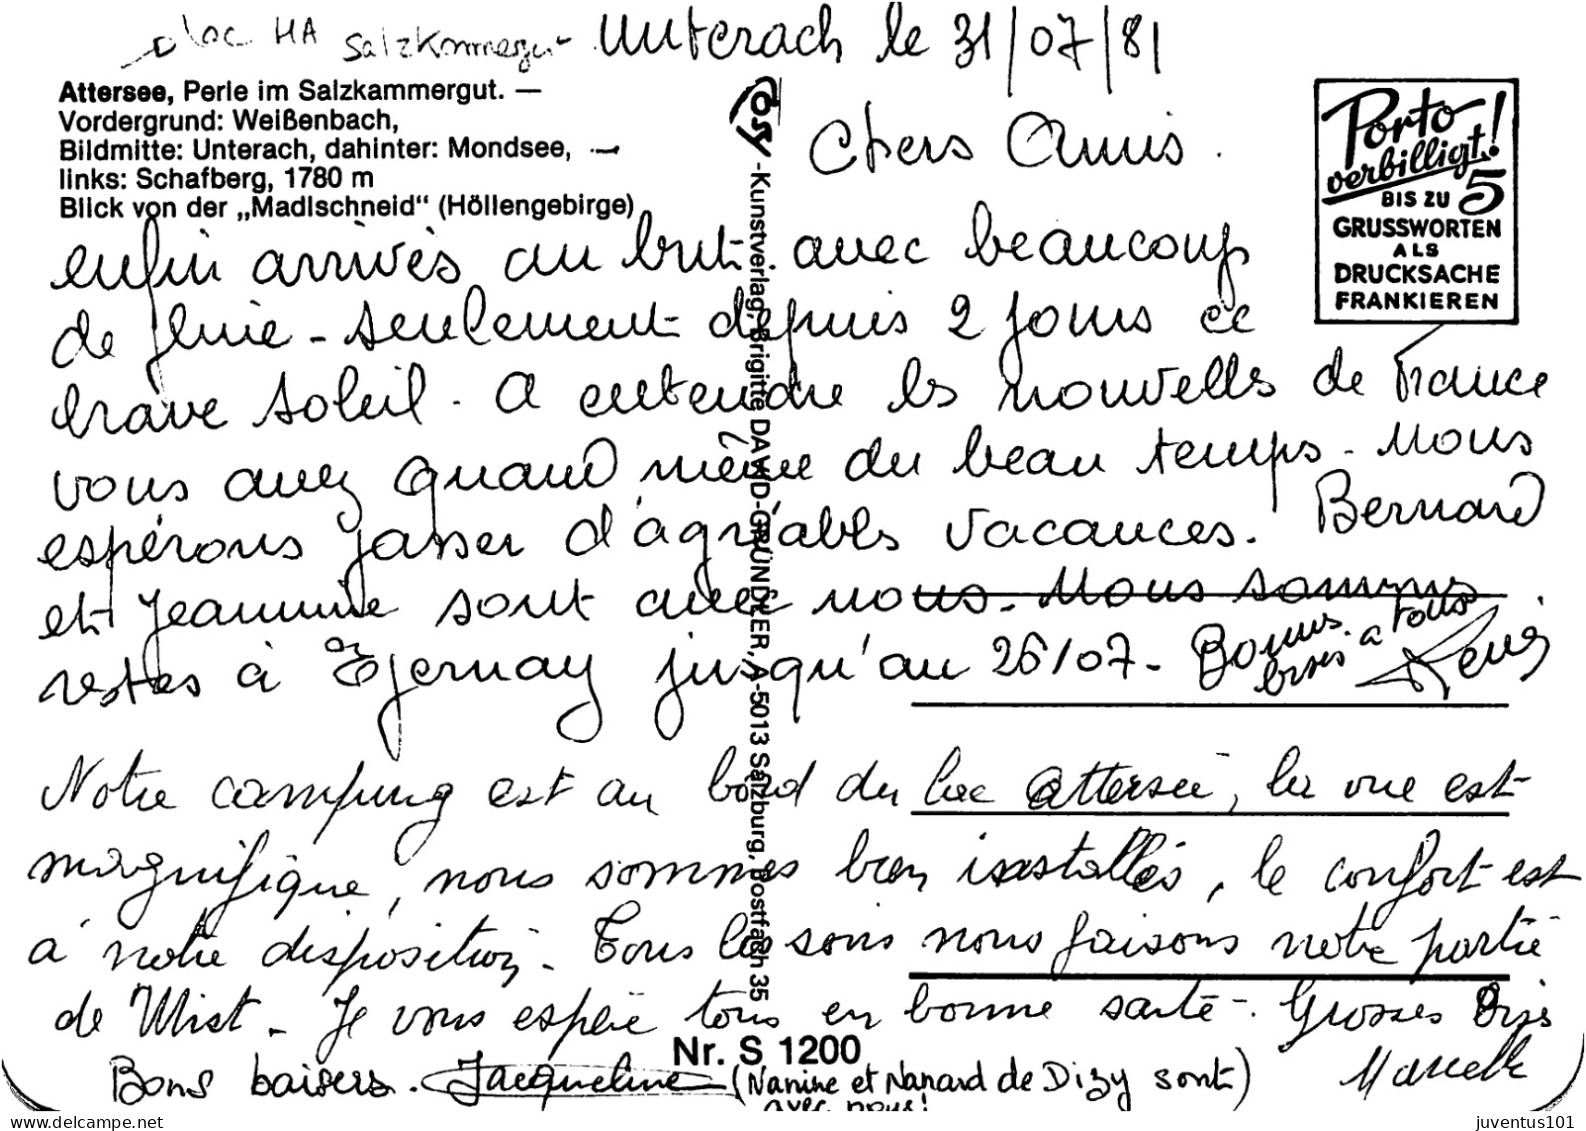 lac HA Salzkammergu- Unterach le 31/07/81
Attersee, Perle im Salzkammergut. —
Vordergrund: Weißenbach,
Bildmitte: Unterach, dahinter: Mondsee, —
links: Schafberg, 1780 m
Blick von der „Madlschneid“ (Höllengebirge)
Cosy -Kunstverlag, Brigitte DAVID-GRÜNDLER, A-5013 Salzburg, Postfach 35
Porto
verbilligt!
BIS ZU 5
GRUSSWORTEN
ALS
DRUCKSACHE
FRANKIEREN
Chers Amis.
enfin arrivés au but. avec beaucoup
de pluie - seulement depuis 2 jours ce
brave soleil. A entendre les nouvelles de France
vous avez quand même du beau temps. Nous
espérons passer d'agréables vacances. Bernard
et Jeannine sont avec nous. Nous sommes
restés à Epernay jusqu'au 26/07- Bonnes
bises a tous
Notre camping est au bord du lac Attersee, la vue est
magnifique, nous sommes bien installés, le confort est
à notre disposition. Tous les soirs nous faisons notre partie
de Whist. Je vous espère tous en bonne santé. Grosses Bises
Nr. S 1200
Marcelle
Bons baisers. Jacqueline (Nanine et Nanard de Dizy sont)
avec nous!
juventus101